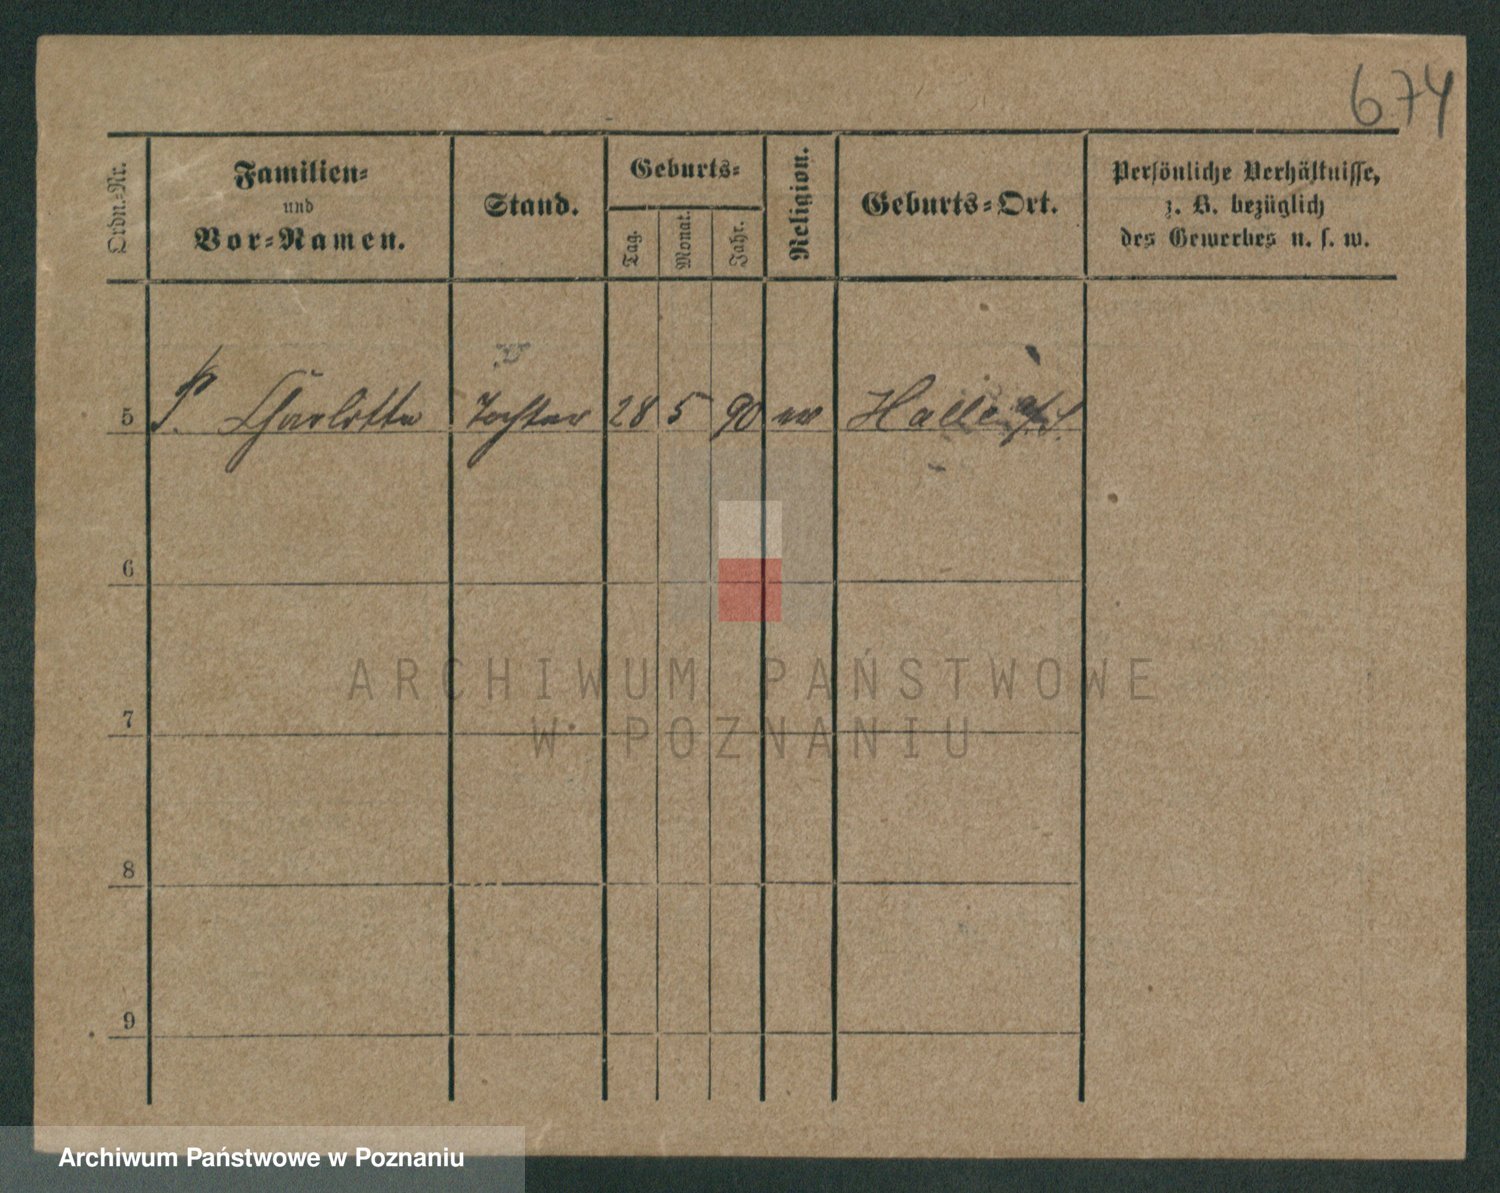 674
Ordn.-Nr.
Familien-
und
Vor-Namen.
Stand.
Geburts-
Tag.
Monat.
Jahr.
Religion.
Geburts-Ort.
Persönliche Verhältnisse,
z. B. bezüglich
des Gewerbes u. s. w.
5 Charlotte Tochter 28 5 90 ev Halle a/S.
6
7
8
9
ARCHIWUM PAŃSTWOWE
W POZNANIU
Archiwum Państwowe w Poznaniu